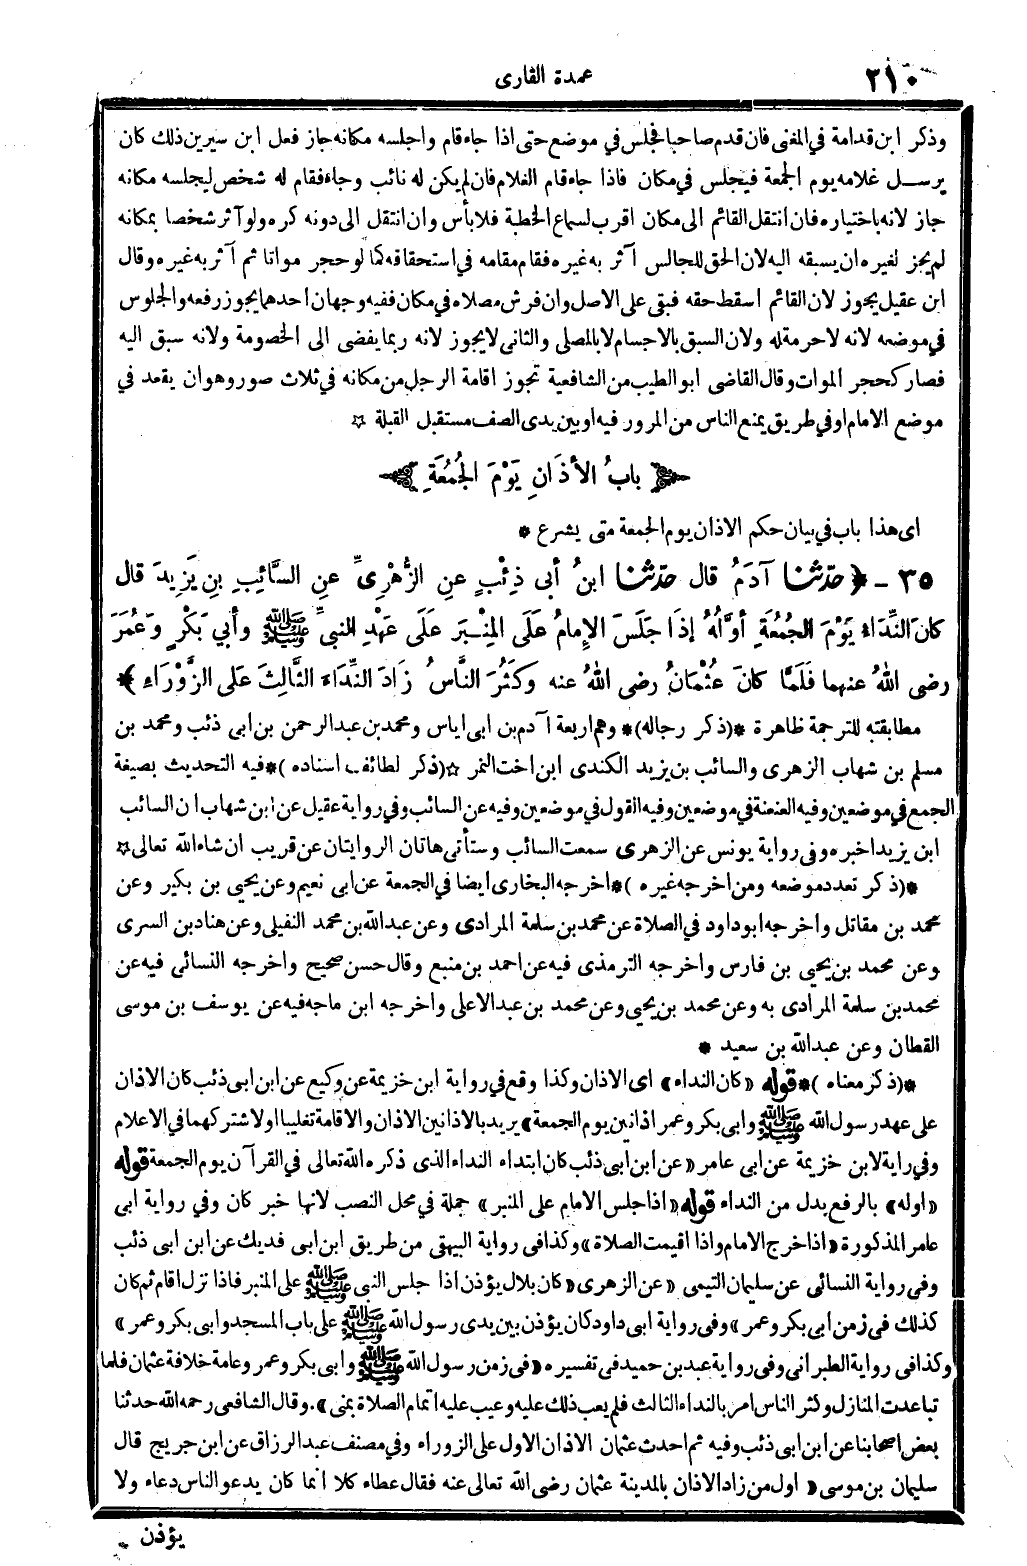 ٢١٠
عمدة القارى
وذكر ابن قدامة فى المغنى فان قدم صاحبا فجلس في موضع حتى اذا جاء قام واجلسه مكانه جاز فعل ابن سيرين ذلك كان
يرسل غلامه يوم الجمعة فيجلس في مكان فاذا جاء قام الغلام فان لم يكن له نائب وجاء فقام له شخص ليجلسه مكانه
جاز لانه باختياره فان انتقل القائم الى مكان اقرب لسماع الخطبة فلا بأس وان انتقل الى دونه كره ولو آثر شخصا بمكانه
لم يجز لغيره ان يسبقه اليه لان الحق للجالس آثر به غيره فقام مقامه في استحقاقه كما لو حجر مواتا ثم آثر به غيره وقال
ابن عقيل يجوز لان القائم اسقط حقه فبقى على الاصل وان فرش مصلاه في مكان ففيه وجهان احدهما يجوز رفعه والجلوس
في موضعه لانه لا حرمة له ولان السبق بالاجسام لا بالمصلى والثانى لا يجوز لانه ربما يفضى الى الخصومة ولانه سبق اليه
فصار كحجر الموات وقال القاضى ابو الطيب من الشافعية تجوز اقامة الرجل من مكانه في ثلاث صور وهو ان يقعد في
موضع الامام او في طريق يمنع الناس من المرور فيه او بين يدى الصف مستقبل القبلة ☆
﴿ بابُ الأذَانِ يَوْمَ الجُمُعَةِ ﴾
اى هذا باب في بيان حكم الاذان يوم الجمعة متى يشرع *
٣٥ - ﴿ حدثنا آدَمُ قال حدثنا ابنُ أبى ذِئْبٍ عنِ الزُّهْرِىِّ عنِ السَّائِبِ بنِ يَزِيدَ قال
كانَ النِّدَاءُ يَوْمَ الجُمُعَةِ أوَّلُهُ إذَا جَلَسَ الإمامُ عَلَى المِنْبَرِ عَلَى عَهْدِ النبيِّ ﷺ وأبي بَكْرٍ وَعُمَرَ
رضى اللهُ عنهما فَلَمَّا كانَ عُثْمانُ رضى اللهُ عنه وكَثُرَ النَّاسُ زَادَ النِّدَاءَ الثَّالِثَ عَلَى الزَّوْرَاءِ ﴾ *
مطابقته للترجمة ظاهرة *(ذكر رجاله)* وهم اربعة آدم بن ابى اياس ومحمد بن عبد الرحمن بن ابى ذئب ومحمد بن
مسلم بن شهاب الزهرى والسائب بن يزيد الكندى ابن اخت النمر ☆(ذكر لطائف اسناده)* فيه التحديث بصيغة
الجمع في موضعين وفيه العنعنة في موضعين وفيه القول في موضعين وفيه عن السائب وفي رواية عقيل عن ابن شهاب ان السائب
ابن يزيد اخبره وفى رواية يونس عن الزهرى سمعت السائب وستأتى هاتان الروايتان عن قريب ان شاء الله تعالى ☆
*(ذكر تعدد موضعه ومن اخرجه غيره)* اخرجه البخارى ايضا في الجمعة عن ابى نعيم وعن يحيى بن بكير وعن
محمد بن مقاتل واخرجه ابو داود في الصلاة عن محمد بن سلمة المرادى وعن عبد الله بن محمد النفيلى وعن هناد بن السرى
وعن محمد بن يحيى بن فارس واخرجه الترمذى فيه عن احمد بن منيع وقال حسن صحيح واخرجه النسائى فيه عن
محمد بن سلمة المرادى به وعن محمد بن يحيى وعن محمد بن عبد الاعلى واخرجه ابن ماجه فيه عن يوسف بن موسى
القطان وعن عبد الله بن سعيد *
*(ذكر معناه)* قوله «كان النداء» اى الاذان وكذا وقع في رواية ابن خزيمة عن وكيع عن ابن ابى ذئب كان الاذان
على عهد رسول الله ﷺ وابى بكر وعمر اذانين يوم الجمعة» يريد بالاذانين الاذان والاقامة تغليبا او لاشتراكهما في الاعلام
وفي راية لابن خزيمة عن ابى عامر «عن ابن ابى ذئب كان ابتداء النداء الذى ذكره الله تعالى في القرآن يوم الجمعة قوله
«اوله» بالرفع بدل من النداء قوله «اذا جلس الامام على المنبر» جملة في محل النصب لانها خبر كان وفي رواية ابى
عامر المذكورة «اذا خرج الامام واذا اقيمت الصلاة» وكذا فى رواية البيهقى من طريق ابن ابى فديك عن ابن ابى ذئب
وفى رواية النسائى عن سليمان التيمى «عن الزهرى «كان بلال يؤذن اذا جلس النبى ﷺ على المنبر فاذا نزل اقام ثم كان
كذلك فى زمن ابى بكر وعمر» وفى رواية ابى داود كان يؤذن بين يدى رسول الله ﷺ على باب المسجد وابى بكر وعمر»
وكذا فى رواية الطبرانى وفى رواية عبد بن حميد فى تفسيره «فى زمن رسول الله ﷺ وابى بكر وعمر وعامة خلافة عثمان فلما
تباعدت المنازل وكثر الناس امر بالنداء الثالث فلم يعب ذلك عليه وعيب عليه اتمام الصلاة بمنى». وقال الشافعى رحمه الله حدثنا
بعض اصحابنا عن ابن ابى ذئب وفيه ثم احدث عثمان الاذان الاول على الزوراء وفي مصنف عبد الرزاق عن ابن جريج قال
سليمان بن موسى «اول من زاد الاذان بالمدينة عثمان رضى الله تعالى عنه فقال عطاء كلا انما كان يدعو الناس دعاء ولا
يؤذن